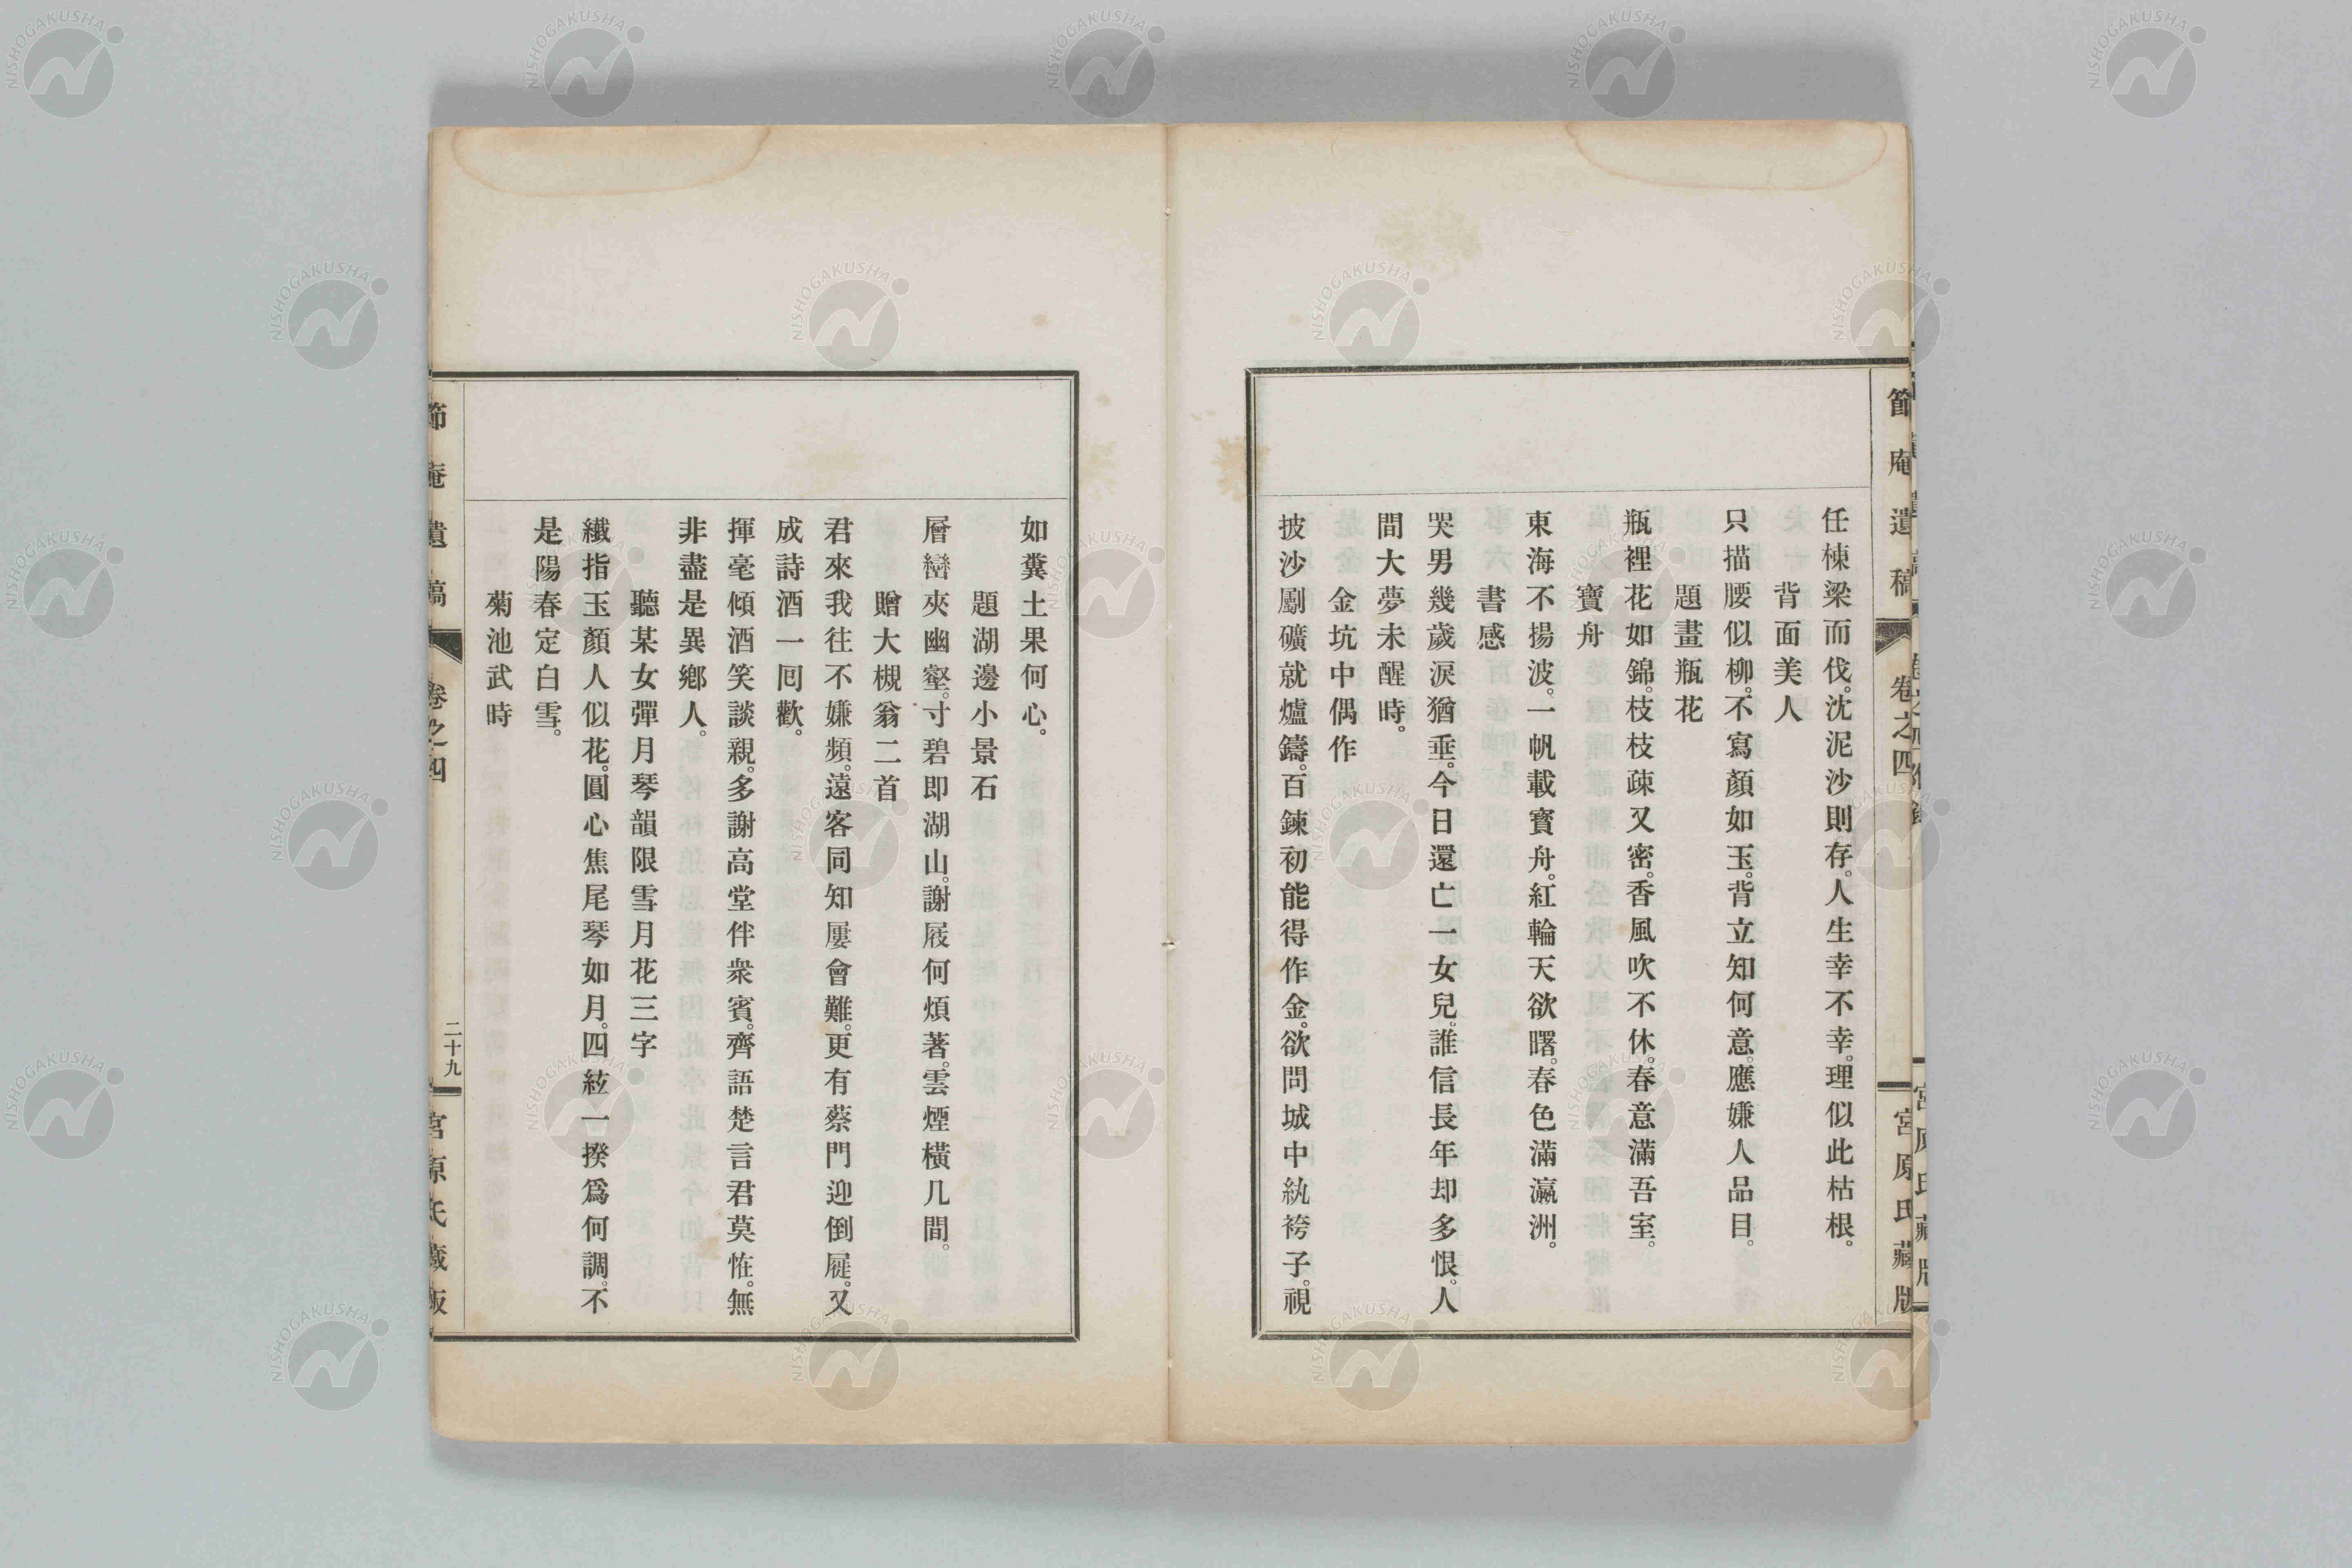 節庵遺稿 卷之四 宮原氏藏版
任棟梁而伐。沈泥沙則存。人生幸不幸。理似此枯根。
背面美人
只描腰似柳。不寫顏如玉。背立知何意。應嫌人品目。
題畫瓶花
瓶裡花如錦。枝枝疎又密。香風吹不休。春意滿吾室。
寶舟
東海不揚波。一帆載寶舟。紅輪天欲曙。春色滿瀛洲。
書感
哭男幾歲淚猶垂。今日還亡一女兒。誰信長年却多恨。人
間大夢未醒時。
金坑中偶作
披沙劚礦就爐鑄。百鍊初能得作金。欲問城中紈袴子。視
如糞土果何心。
題湖邊小景石
層巒夾幽壑。寸碧即湖山。謝屐何煩著。雲煙橫几間。
贈大槻翁二首
君來我往不嫌頻。遠客同知屢會難。更有蔡門迎倒屣。又
成詩酒一囘歡。
揮毫傾酒笑談親。多謝高堂伴衆賓。齊語楚言君莫恠。無
非盡是異鄉人。
聽某女彈月琴韻限雪月花三字
纖指玉顏人似花。圓心焦尾琴如月。四絃一揆爲何調。不
是陽春定白雪。
菊池武時
節庵遺稿 卷之四 二十九 宮原氏藏版
NISHOGAKUSHA